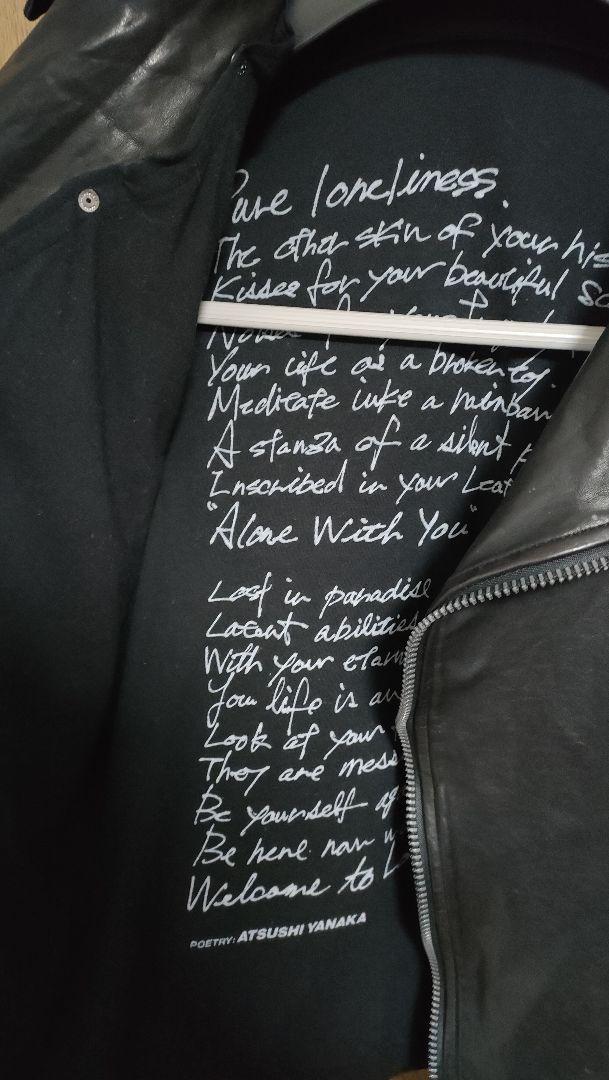 Pure loneliness.
The other skin of your his
Kisses for your beautiful so
your
Your life as a broken toy.
Meditate like a
A stanza of a silent
Inscribed in your Leat
"Alone With You"
Lost in paradise
Latent abilities
With your etern
Your life is an
Look at your
They are mess
Be yourself
Be here now
Welcome to
POETRY: ATSUSHI YANAKA